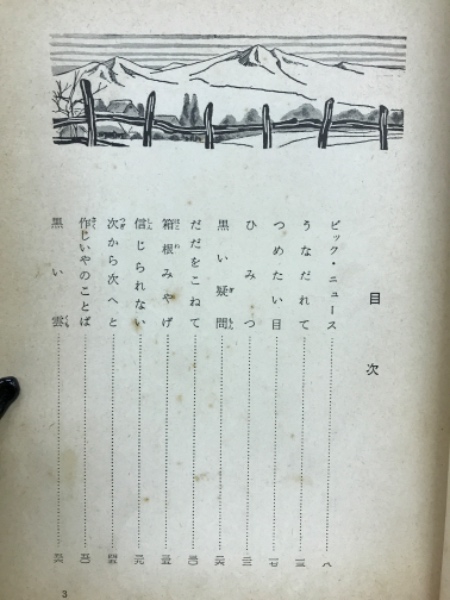 目次
ビッグ・ニュース……八
うなだれて……三
つめたい目……一七
ひみつ……三
黒い疑問……二六
だだをこねて……三〇
箱根みやげ……三五
信じられない……三九
次から次へと……四四
作じいやのことば……五〇
黒い雲……五六
3